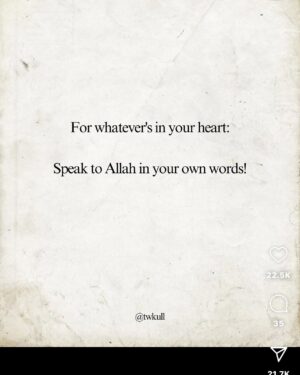 For whatever's in your heart:
Speak to Allah in your own words!
22.5K
35
@twkull
21.7K